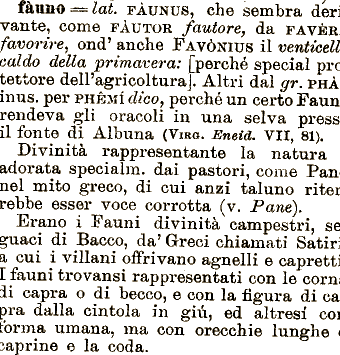 fàuno = lat. FÀUNUS, che sembra deri
vante, come FÀUTOR fautore, da FAVÈR
favorire, ond' anche FAVÓNIUS il venticell
caldo della primavera: [perché special pro
tettore dell'agricoltura]. Altri dal gr. PHÀ
inus. per PHÈMÍ dico, perché un certo Faun
rendeva gli oracoli in una selva press
il fonte di Albuna (VIRG. Eneid. VII, 81).
Divinità rappresentante la natura
adorata specialm. dai pastori, come Pan
nel mito greco, di cui anzi taluno riter
rebbe esser voce corrotta (v. Pane).
Erano i Fauni divinità campestri, se
guaci di Bacco, da' Greci chiamati Satiri
a cui i villani offrivano agnelli e capretti
I fauni trovansi rappresentati con le corn
di capra o di becco, e con la figura di ca
pra dalla cintola in giú, ed altresí co
forma umana, ma con orecchie lunghe
caprine e la coda.